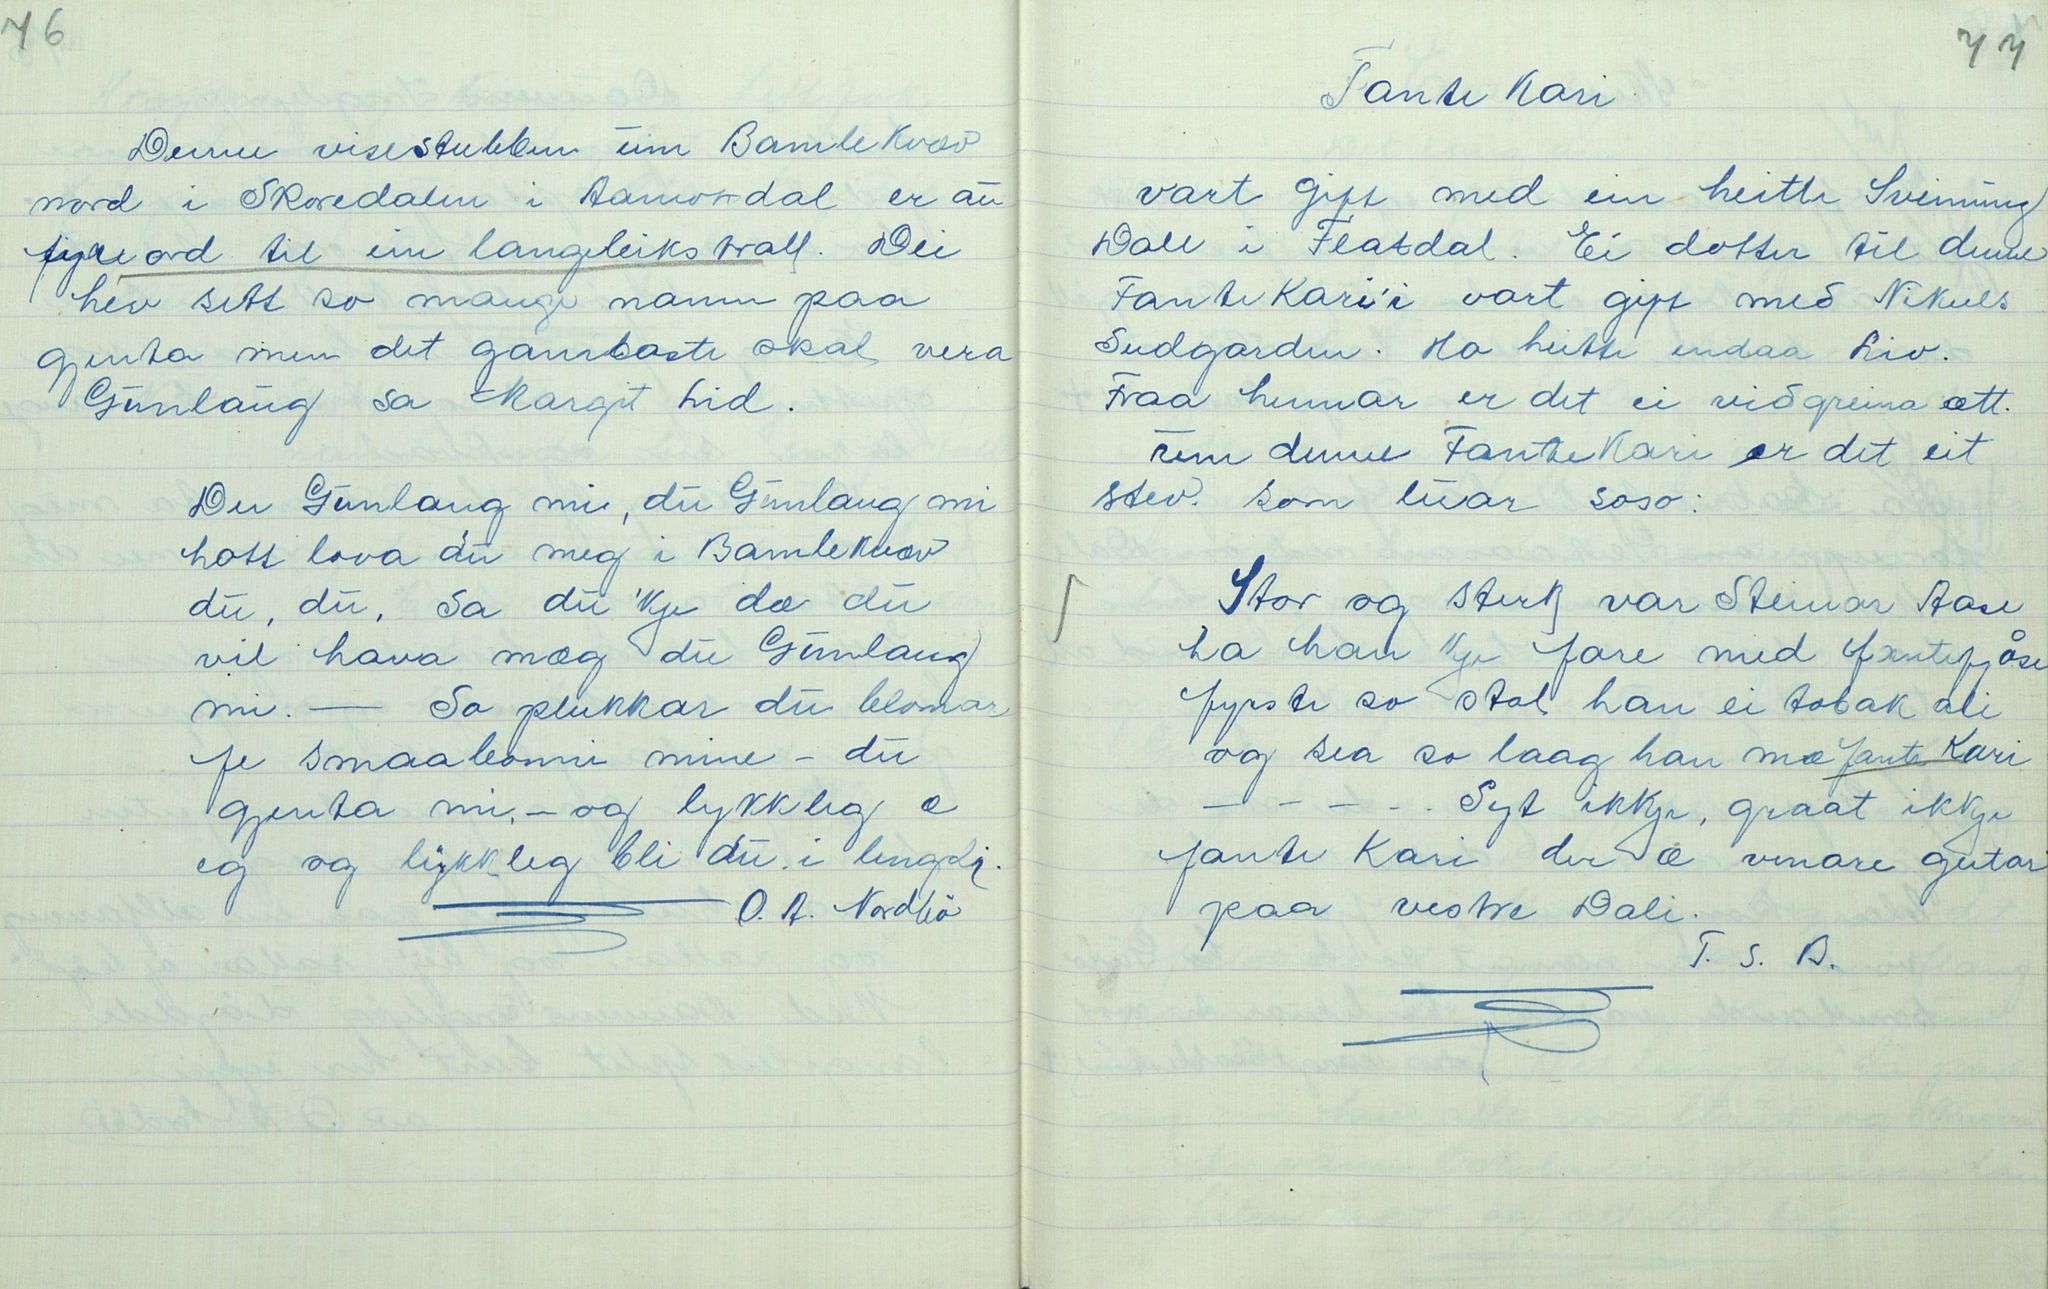 76
Denne visestubben um Bamlekvæv
nord i Skoredalen i Aamotsdal er au
fyre ord til ein langeleikstrall. Dei
hev sett so mange namn paa
gjenta men det gamlaste skal vera
Gunlaug sa Margit Lid.
Du Gunlaug mi, du Gunlaug mi
hott lova du meg i Bamlekvæv
du, du, Sa du 'kje dæ du
vil hava mæg du Gunlaug
mi. — So plukkar du blomar
fe smaabonni mine - du
gjenta mi, - og lykkleg æ
eg og lykkleg bli du i lengdi.
O. A. Nordbö
77
Fante Kari
vart gift med ein heitte Sveinung
Dale i Flatdal. Ei dotter til denne
Fante Kari'i vart gift med Nikuls
Sudgarden. Ho heitte endaa Liv.
Fraa hennar er det ei vidgreina ætt.
Um denne Fante Kari er det eit
stev som lüar soso:
Stor og sterk var Steinar Aase
ha han 'kje fare med fantefjåse
fyrste so stol han ei tobak ali
og sea so laag han mæ fante Kari
- - - - - Syt ikkje, graat ikkje
fante Kari der æ venare gutar
paa vestre Dali.
T. S. B.